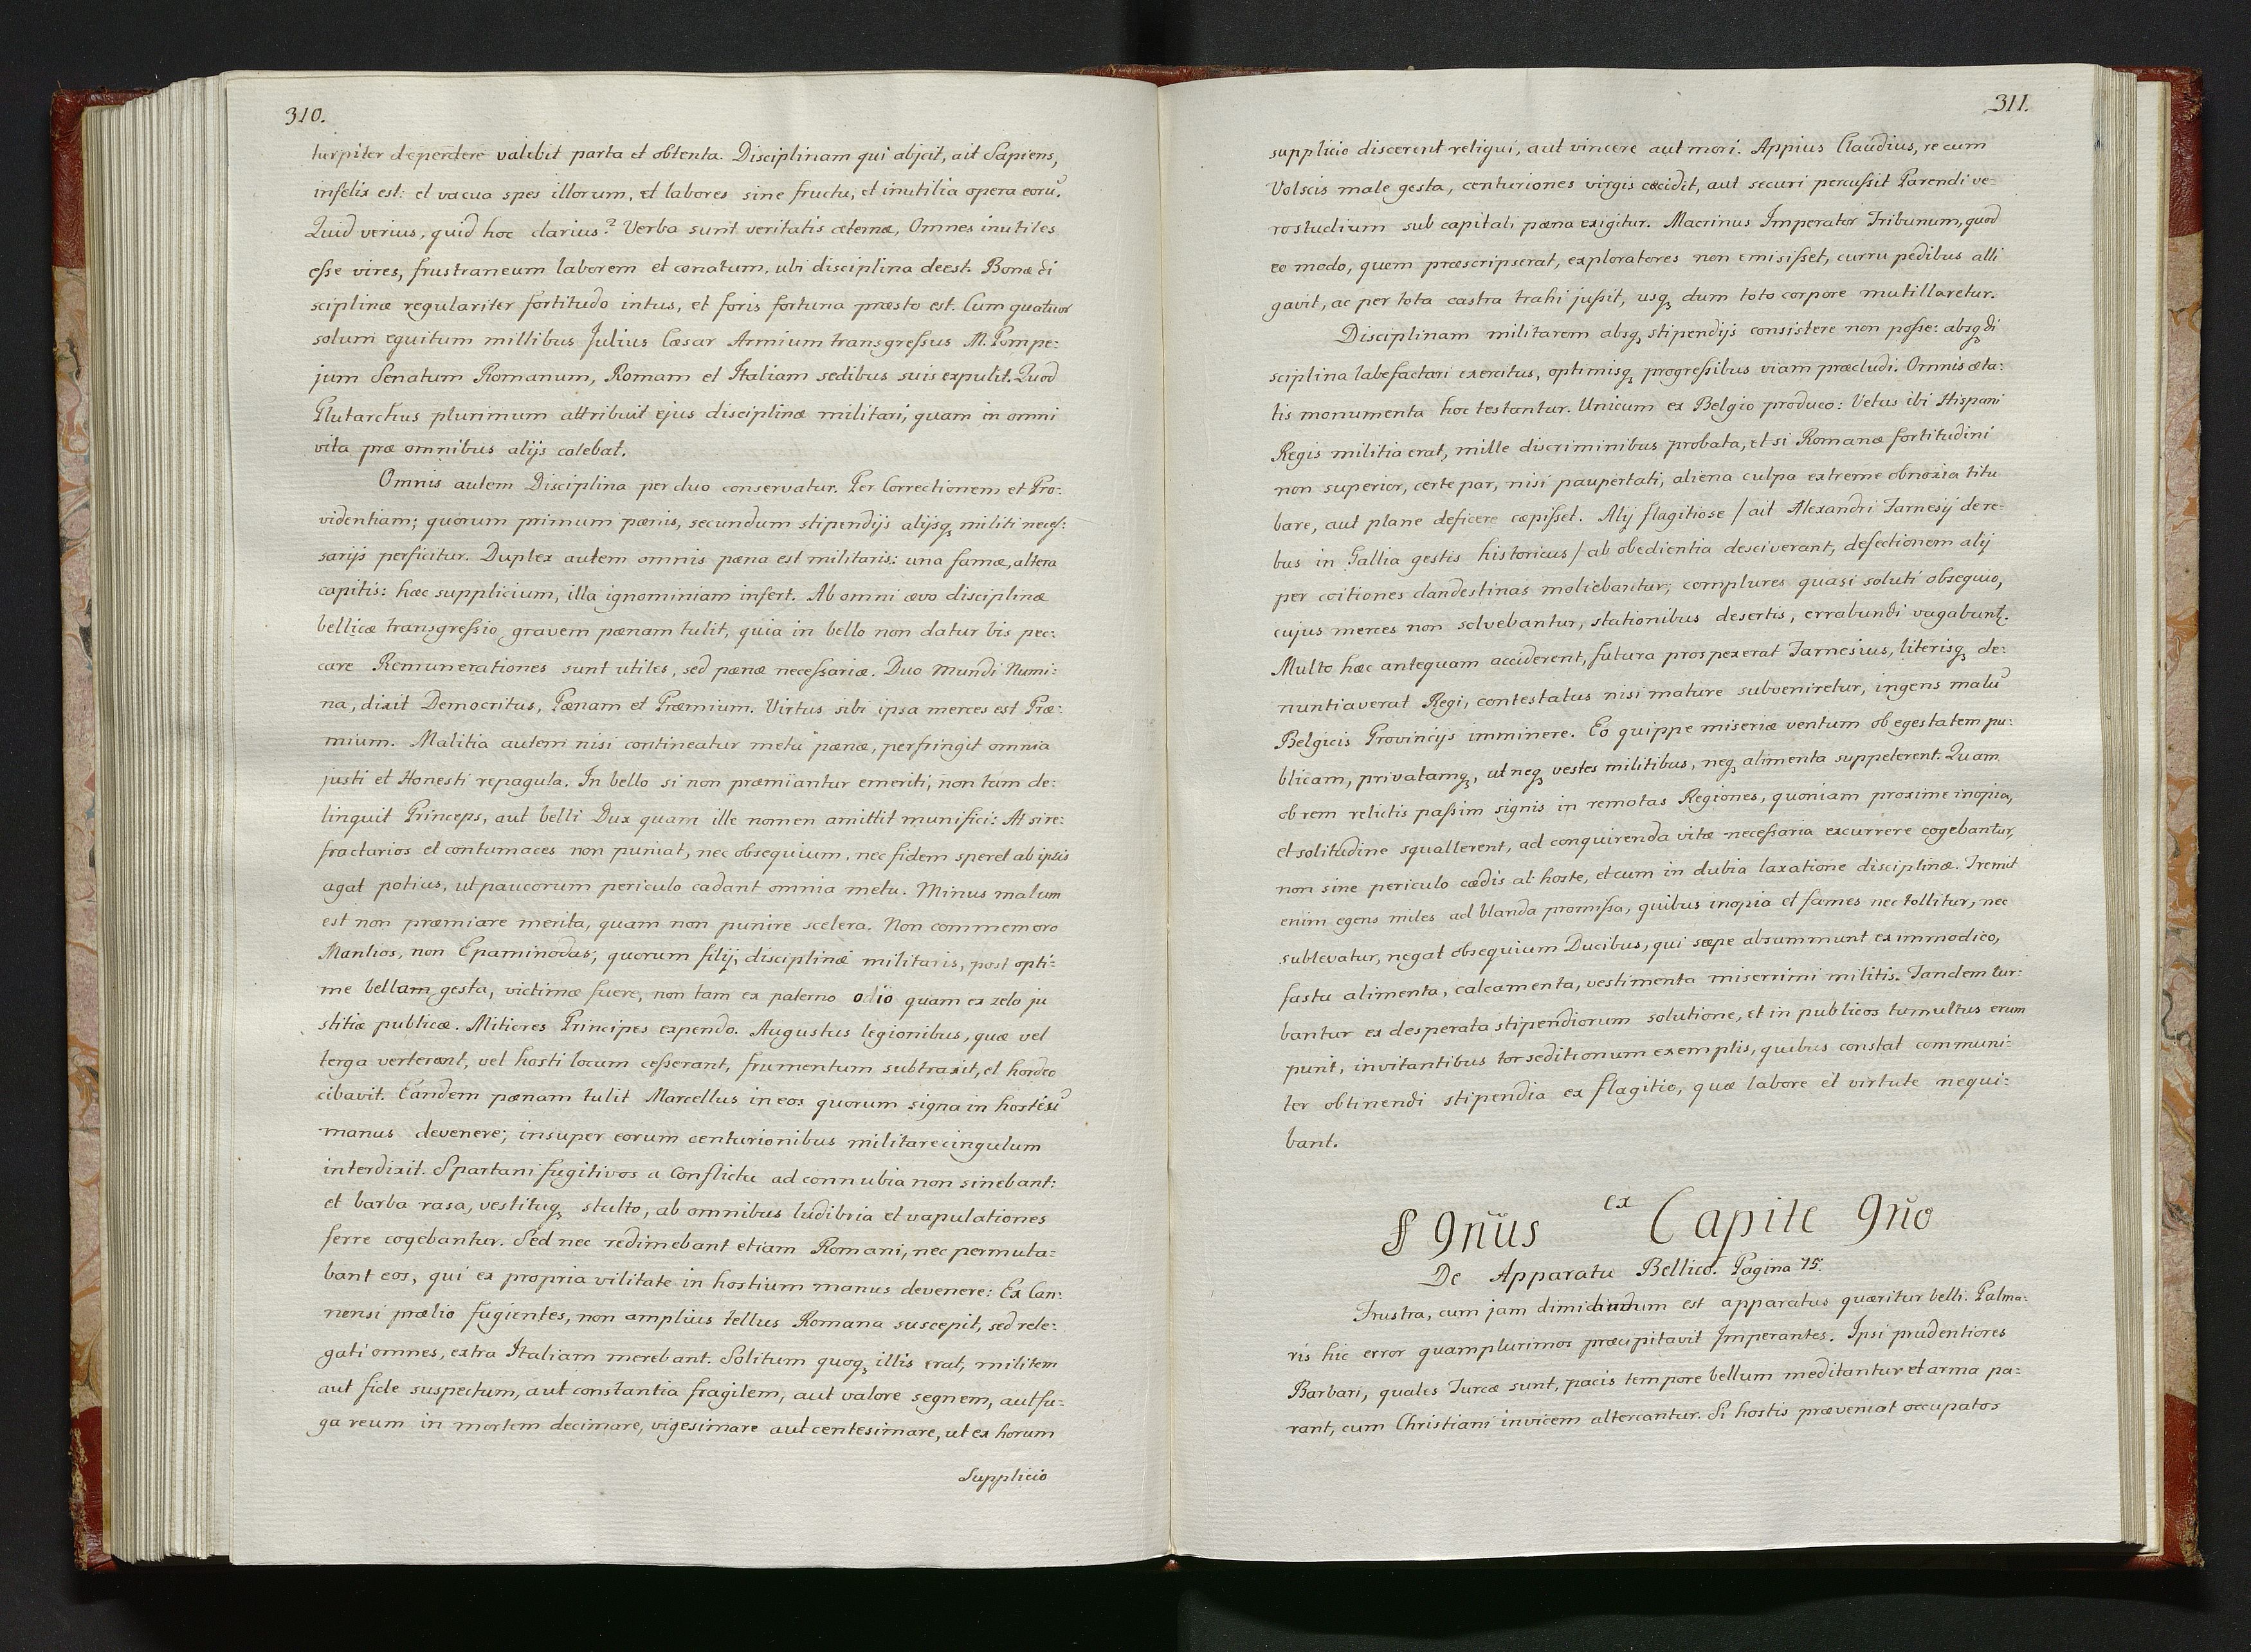 310.
turpiter dependere valebit parta et obtenta. Disciplinam qui abjcit, ait Sapiens,
infelix est: et vacua spes illorum, et labores sine fructu, et inutilia opera eorũ.
Quid verius, quid hoc clarius? Verba sunt veritatis æternæ, Omnes inutiles
esse vires, frustraneum laborem et conatum, ubi disciplina deest. Bonæ di
sciplinæ regulariter fortitudo intus, et foris fortuna præsto est. Cum quatuor
solum equitum millibus Julius Cæsar Armium transgressus M. Pompe:
jum Senatum Romanum, Romam et Italiam sedibus suis expulit. Quod
Plutarchus plurimum attribuit ejus disciplinæ militari, quam in omni
vita præ omnibus alijs colebat.
Omnis autem Disciplina per duo conservatur. Per Correctionem et Pro:
videntiam; quorum primum pænis, secundum stipendijs alijsq militi neces:
sarijs perficitur. Duplex autem omnis pæna est militaris: una famæ, altera
capitis: hæc supplicium, illa ignominiam infert. Ab omni ævo disciplinæ
bellicæ transgressio gravem pænam tulit, quia in bello non datur bis pec:
care Remunerationes sunt utiles, sed pænæ necessariæ. Duo Mundi Numi:
na, dixit Democritus, Pænam et Præmium. Virtus sibi ipsa merces est Præ:
mium. Malitia autem nisi contineatur metu pænæ, perfringit omnia
justi et Honesti repagula. In bello si non præmiantur emeriti, non tam de:
linquit Princeps, aut belli Dux quam ille nomen amittit munifici: At si re:
fractarios et contumaces non puniat, nec obsequium, nec fidem speret ab ipsis
agat potius, ut paucorum periculo cadant omnia metu. Minus malum
est non præmiare merita, quam non punire scelera. Non commemoro
Manlios, non Epaminodas, quorum filij, disciplinæ militaris, post opti:
me bellam gesta, victimæ fuere, non tam ex paterno odio quam ex zelo ju
stitiæ publicæ. Mitiores Principes expendo. Augustus legionibus, quæ vel
terga verterant, vel hosti locum cesserant, frumentum subtraxit, et hordeo
cibavit. Eandem pænam tulit Marcellus in eos quorum signa in hostiũ
manus devenere; insuper eorum centurionibus militare cingulum
interdixit. Spartani fugitivos a Conflictu ad connubia non sinebant:
et barba rasa, vestituq stulto, ab omnibus ludibria et vapulationes
ferre cogebantur. Sed nec redimebant etiam Romani, nec permuta:
bant eos, qui ex propria vilitate in hostium manus devenere: Ex Can:
nensi prælio fugientes, non amplius tellus Romana suscepit, sed rele:
gati omnes, extra Italiam merebant. Solitum quoq illis erat, militem
aut fide suspectum, aut constantia fragilem, aut valore segnem, aut fu:
ga reum in mortem decimare, vigesimare aut centesimare, ut ex horum
Supplicio
311.
supplicio discerent reliqui, aut vincere aut mori. Appius Claudius, re cum
Volscis male gesta, centuriones virgis cæcidit, aut securi percussit Parendi ve:
ro studium sub capitali pæna exigitur. Macrinus Imperator Tribunum, quod
eo modo, quem præscripserat, exploratores non emisisset, curru pedibus alli
gavit, ac per tota castra trahi jussit, usq dum toto corpore mutillaretur.
Disciplinam militarem absq stipendijs consistere non posse: absq di
sciplina labefactari exercitus, optimisq progressibus viam præcludi. Omnis æta:
tis monumenta hoc testantur. Unicum ex Belgio produco: Vetus ibi Hispani
Regis militia erat, mille discriminibus probata, et si Romanæ fortitudini
non superior, certe par, nisi paupertati, aliena culpa extreme obnoxia titu
bare, aut plane deficere cæpisset. Alij flagitiose / ait Alexandri Farnesij de re:
bus in Gallia gestis historicus / ab obedientia desciverant, defectionem alij
per coitiones clandestinas moliebantur; complures quasi soluti obsequio,
cujus merces non solvebantur, stationibus desertis, errabundi vagabunt.
Multo hæc antequam acciderent, futura prospexerat Farnesius, literisq de:
nuntiaverat Regi, contestatus nisi mature subveniretur, ingens malũ
Belgicis Provincijs imminere. Eo quippe miseriæ ventum ob egestatem pu:
blicam, privatamq, ut neq vestes militibus, neq alimenta suppeterent. Quam
ob rem relictis passim signis in remotas Regiones, quoniam proxime inopia,
et solitudine squallerent, ad conquirenda vitæ necessaria excurrere cogebantur,
non sine periculo cædis ab hoste, et cum in dubia laxatione disciplinæ. Fremit
enim egens miles ad blanda promissa, quibus inopia et fames nec tollitur, nec
sublevatur, negat obsequium Ducibus, qui sæpe absummunt ex immodico,
fastu alimenta, calcamenta, vestimenta miserrimi militis. Tandem tur:
bantur ex desperata stipendiorum solutione, et in publicos tumultus erum
punt, invitantibus tor seditionum exemplis, quibus constat communi:
ter obtinendi stipendia ex flagitio, quæ labore et virtute nequi:
bant.
§ 9nũs ex Capite 9nõ
De Apparatu Bellico. Pagina 75.
Frustra, cum jam dimicandum est apparatus quæritur belli. Palma:
ris hic error quamplurimos præcipitavit Imperantes. Ipsi prudentiores
Barbari, quales Turcæ sunt, pacis tempore bellum meditantur et arma pa:
rant, cum Christiani invicem altercantur. Si hostis præveniat occupatos